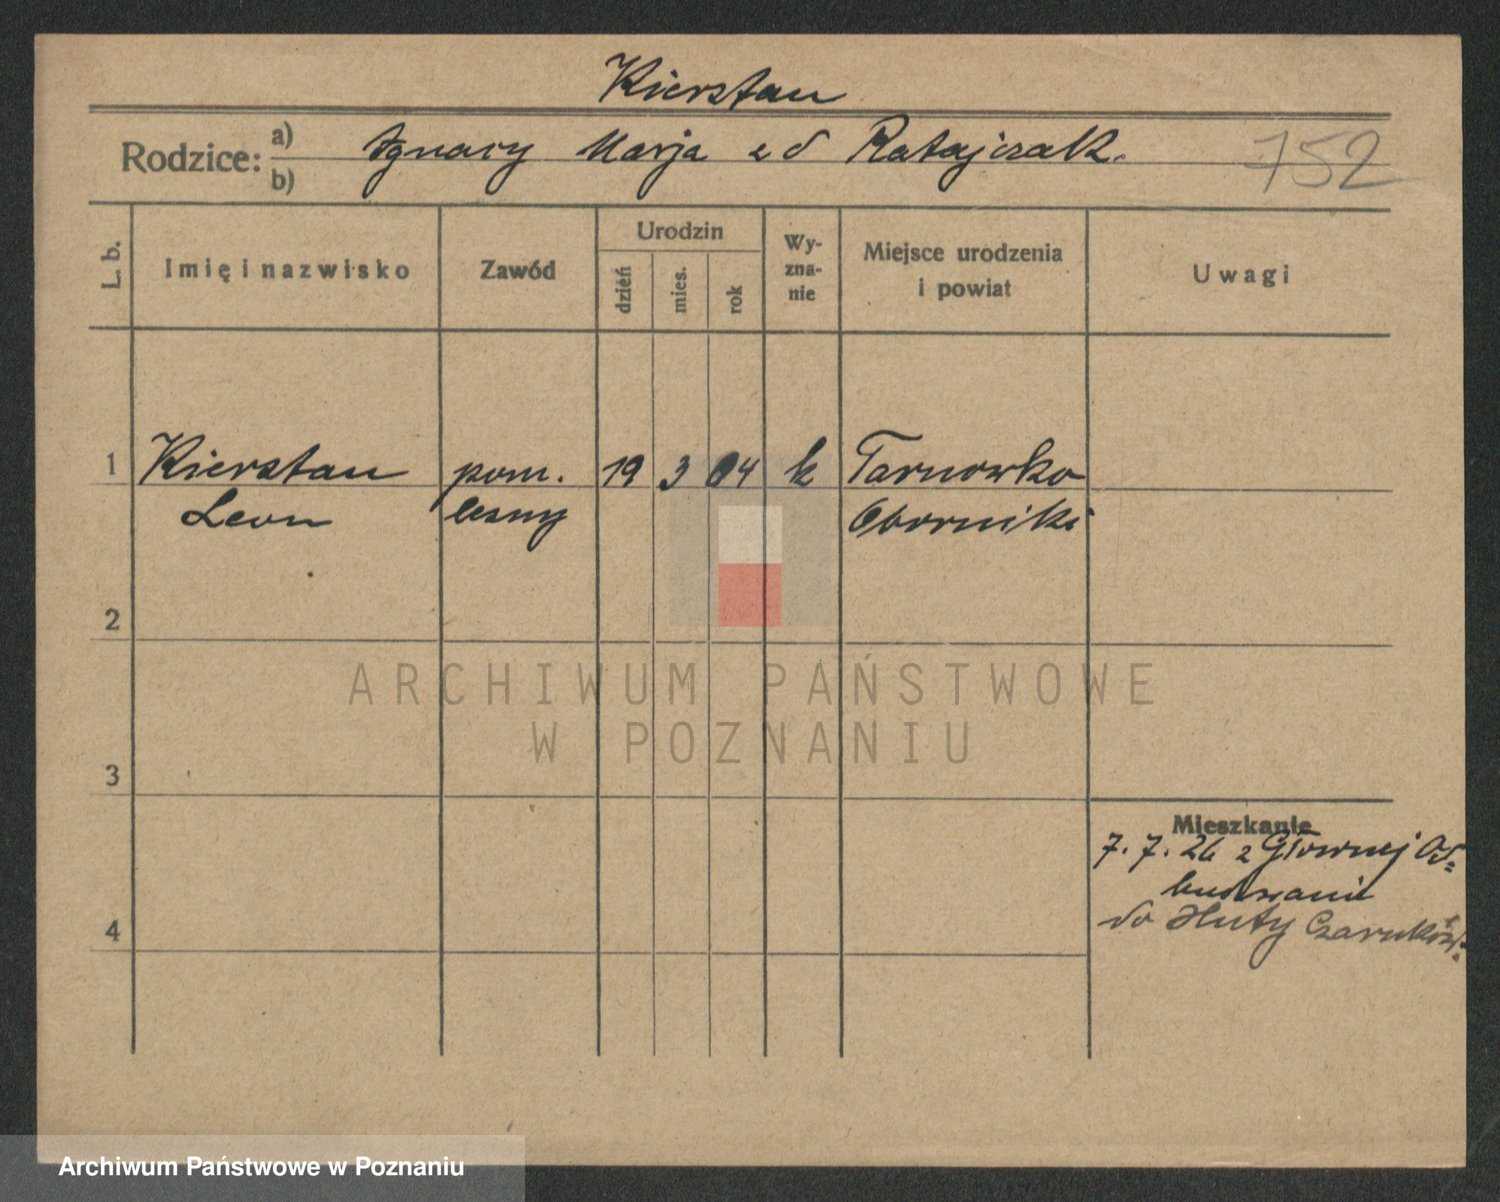 Kierstan
Rodzice: a) b) Ignacy Marja z d Ratajczak.
752
L. b.
Imię i nazwisko
Zawód
Urodzin
dzień
mies.
rok
Wy-
zna-
nie
Miejsce urodzenia
i powiat
Uwagi
1 Kierstan pom. 19 3 04 k Tarnowko
Leon leśny Oborniki
2
3
4
Mieszkanie
7. 7. 26 z Głównej
do Huty
ARCHIWUM PAŃSTWOWE
W POZNANIU
Archiwum Państwowe w Poznaniu